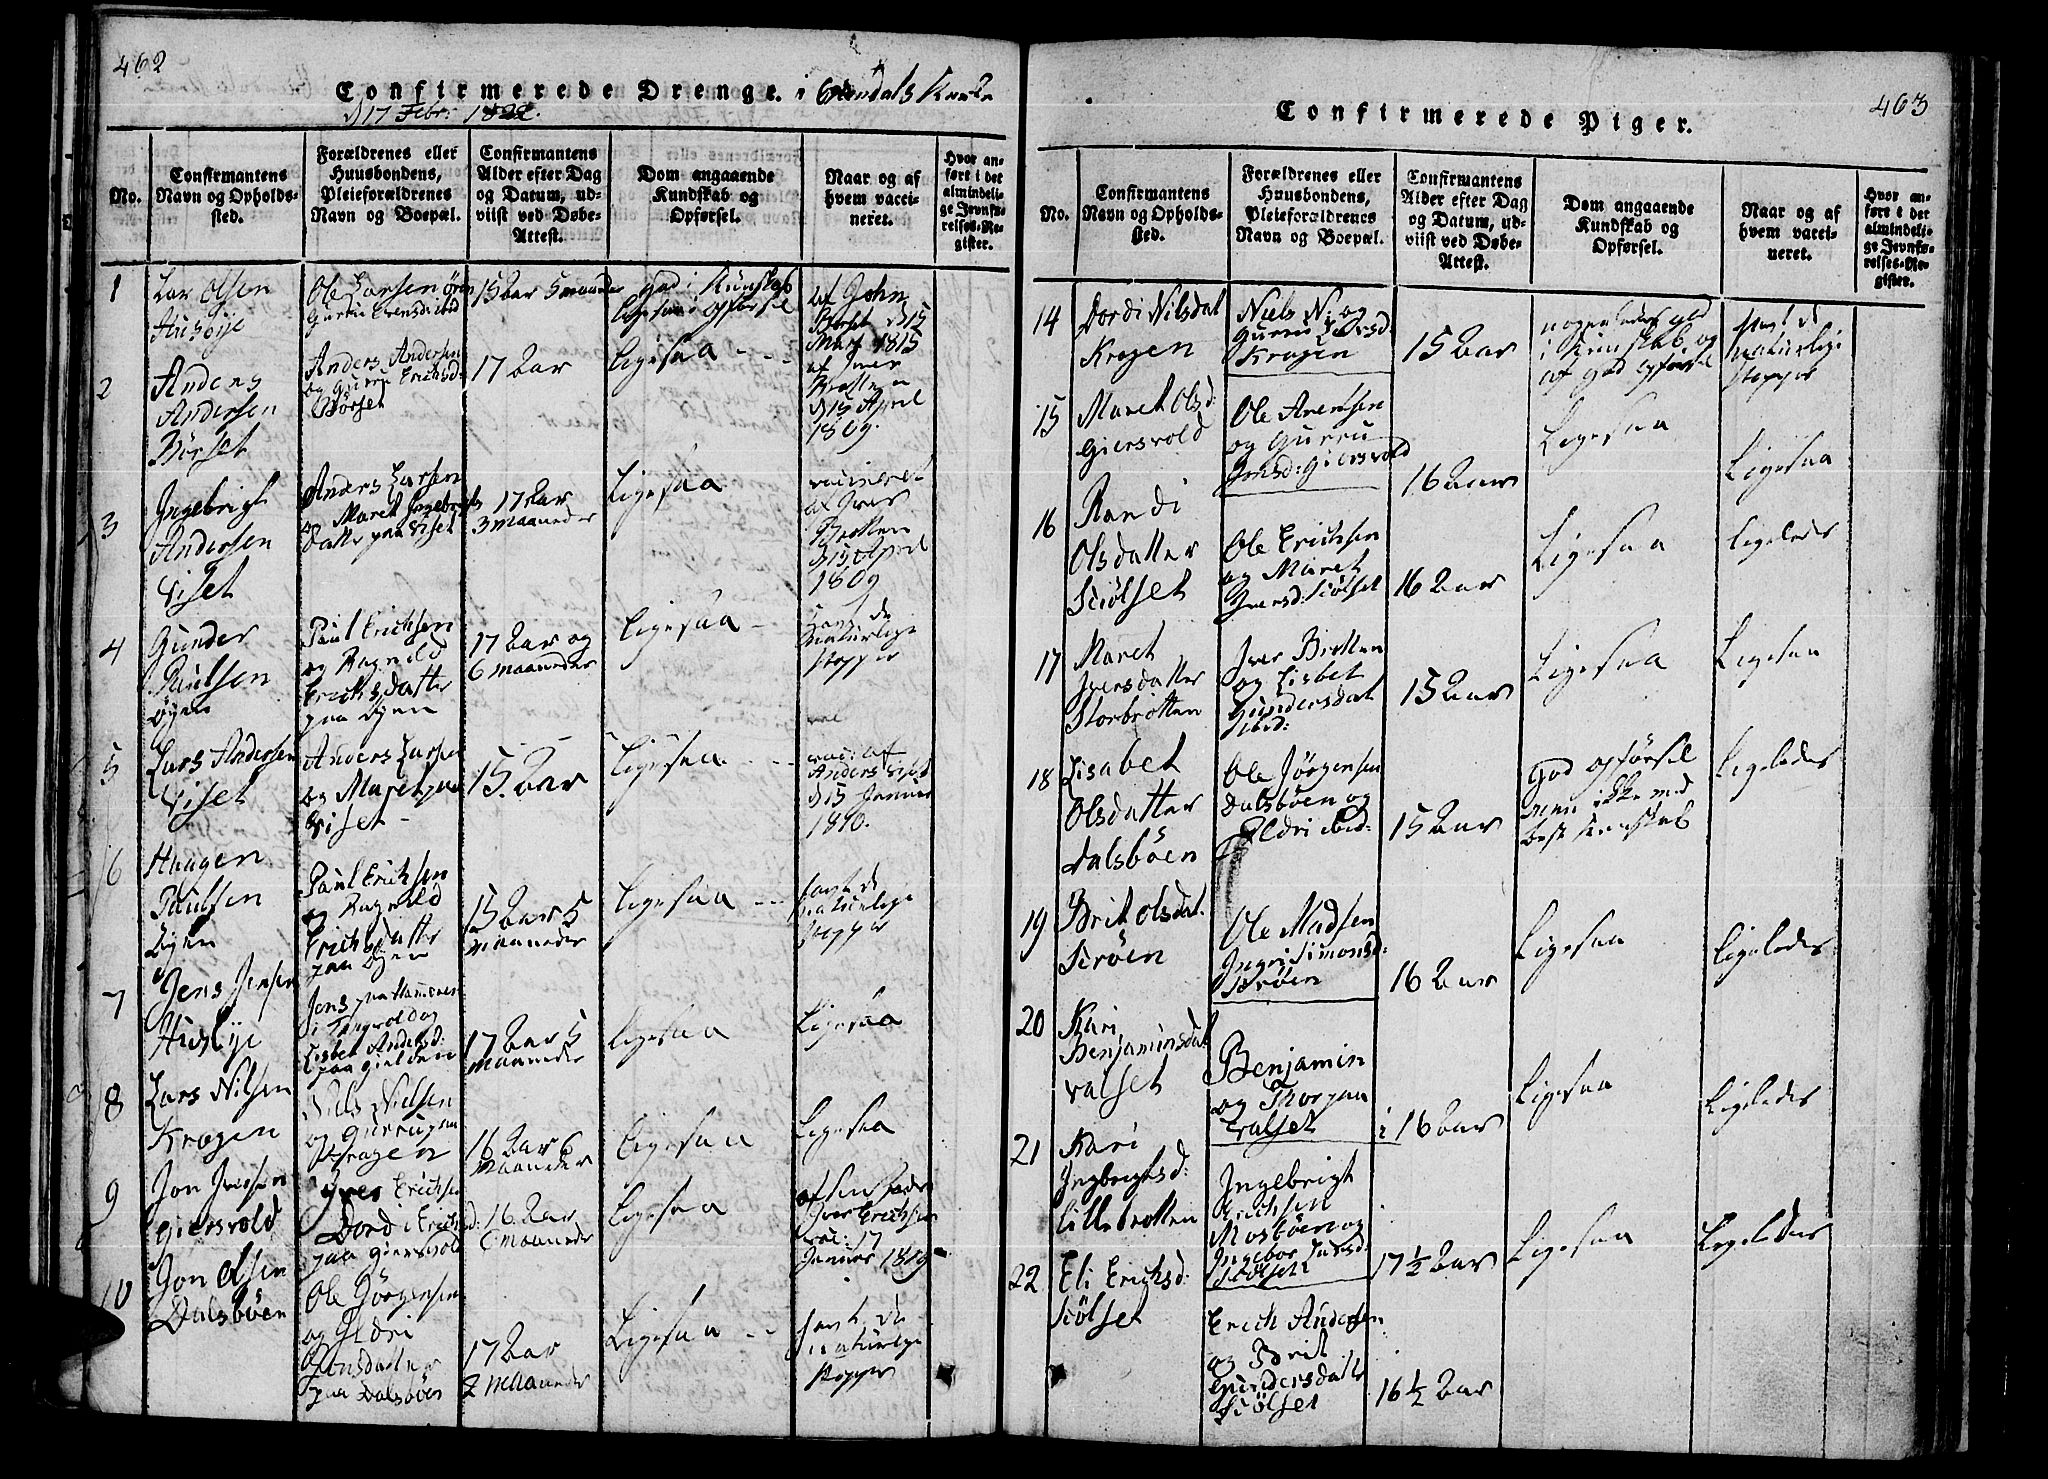 462
Confirmerede Drenge. i
d 17 Febr: 1822.
No.
Confirmantens
Navn og Opholds-
sted.
Forældrenes eller
Huusbondens,
Pleieforældrenes
Navn og Boepæl.
Confirmantens
Alder efter Dag
og Datum, ud-
viist ved Døbe-
Attest.
Dom angaaende
Kundskab og
Opførsel.
Naar og af
hvem vacci-
neret.
Hvor an-
ført i det
almindeli-
ge Jevnfø-
relses-Re-
gister.
1
Lar Olsen
Husøye
Ole Larsen
15 aar 5 maaneder
god i Kunskab
ligesaa opførsel
af John
Børset d 15
Marz 1815
2
Anders
Andersen
Börset
Anders Andersen
og Gurru Erichsd:
Börset
17 aar
Ligesaa
af Iver
Brotten
d 15 April
1809.
3
Ingebrigt
Andersen
Viset
Anders Larsen
og Maret Ingebrigts
Datter paa Viset
17 aar
3 maaneder
Ligesaa
vacineret
af Iver
Brotten
d 15 April
1809
4
Gunder
Paulsen
Øyen
Paul Erichsen
og Ragnild
Erichsdatter
paa Øyen
17 aar og
6 maaneder
Ligesaa
havt de
naturlige
kopper
5
Lars Andersen
Viset
Anders Larsen
og Maret paa
Viset
15. aar
Ligesaa
vac: af
Anders Viset
d 15 Januar
1810.
6
Haagen
Paulsen
Øyen
Paul Erichsen
og Ragnild
Erichsdatter
paa Øyen
15 aar 5
maaneder
Ligesaa
havt de
naturlige
kopper
7
Jens Jensen
Husöye
Jens paa Hammeren
i Tingvold og
Lisbet Andersd:
paa Gielden
17 aar 5
maaneder
ligesaa
Ligesaa
8
Lars Nilsen
Kragen
Niels Nielsen
og Gurru paa
Kragen
16 aar 6
maaneder
Ligesaa
Ligesaa
9
Jon Iversen
Giersvold
Iver Erichsen
Dordi Erichsd:
paa Giersvold
16 aar
6 maaneder
Ligesaa
af sin Fader
Iver Erichsen
vac: 17
Januar 1819
10
Jon Olsen
Dalsböen
Ole Jörgensen
og Ildri
Jonsdatter
paa Dalsböen
17 aar
2 maaneder
Ligesaa
havt de
naturlige
kopper
463
Confirmerede Piger.
No.
Confirmantens
Navn og Opholds-
sted.
Forældrenes eller
Huusbondens,
Pleieforældrenes
Navn og Boepæl.
Confirmantens
Alder efter Dag
og Datum, ud-
viist ved Døbe-
Attest.
Dom angaaende
Kundskab og
Opførsel.
Naar og af
hvem vacci-
neret.
Hvor an-
ført i det
almindeli-
ge Jevnfø-
relses-Re-
gister.
14
Dordi Nilsdat
Kragen
Niels N: og
Gurru Larsd:
Kragen
15 aar
nogenledes god
i Kunskab og
af god opførsel
havt de
naturlige
kopper
15
Maret Olsd:
Giersvold
Ole Arentsen
og Gurru
Jonsd: Giersvold
16 aar
Ligesaa
Ligesaa
16
Randi
Olsdatter
Skiölset
Ole Erichsen
og Maret
Iversd: Skiölset
16 aar
Ligesaa
ligeledes
17
Maret
Iversdatter
Storbrotten
Iver Brotten
og Lisbet
Gundersdat
ibid:
15 aar
Ligesaa
Ligesaa
18
Lisabet
Olsdatter
Dalsböen
Ole Jörgensen
Dalsböen og
Ildri ibid:
15 aar
God opförsel
men ikke med
best Kunskab
Ligeledes
19
Brit Olsdat.
Ole Madsen
Ingri Simonsd:
16 aar
Ligesaa
Ligeledes
20
Kari
Benjaminsdat
Valset
Benjamin
og Thor paa
Valset
16 aar
Ligesaa
Ligeledes
21
Kari
Ingbrigtsd:
Lillebrotten
Ingebrigt
Erichsen
Mosböen og
Ingebor Larsd:
17 ½ aar
Ligesaa
Ligeledes
22
Eli Erichsd:
Skiölset
Erich Andersen
og Brit
Gundersdatter
Skiölset
16 ½ aar